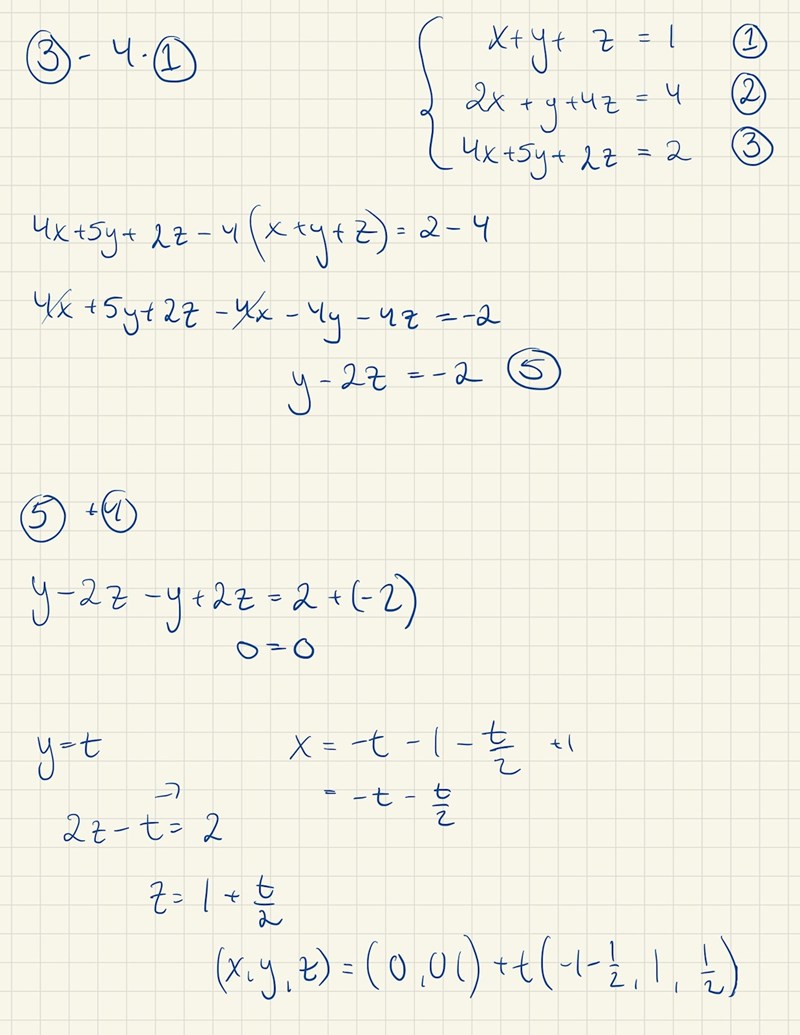 ③ - 4·①
x+y+ z = 1 ①
2x + y+4z = 4 ②
4x+5y+ 2z = 2 ③
4x+5y+ 2z - 4(x+y+z) = 2-4
4x +5y+2z -4x - 4y - 4z = -2
y - 2z = -2 ⑤
⑤ +④
y-2z -y+2z = 2+(-2)
0=0
y=t
→
2z-t= 2
z= 1 + t/2
x = -t - 1 - t/2 +1
= -t - t/2
(x,y,z) = (0,01) + t(-1-1/2, 1, 1/2)